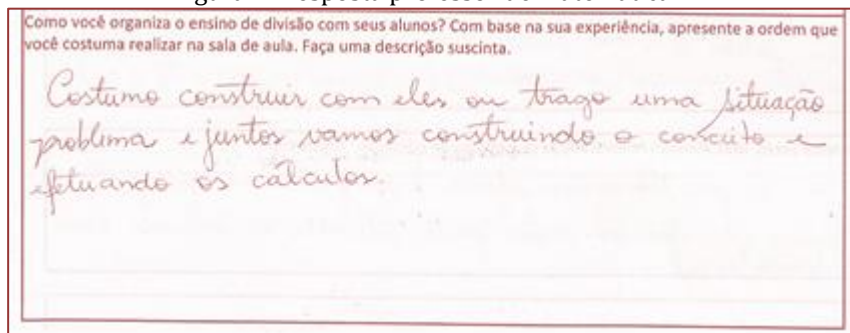 Como você organiza o ensino de divisão com seus alunos? Com base na sua experiência, apresente a ordem que
você costuma realizar na sala de aula. Faça uma descrição suscinta.
Costumo construir com eles ou trago uma situação
problema e juntos vamos construindo o conceito e
efetuando os cálculos.